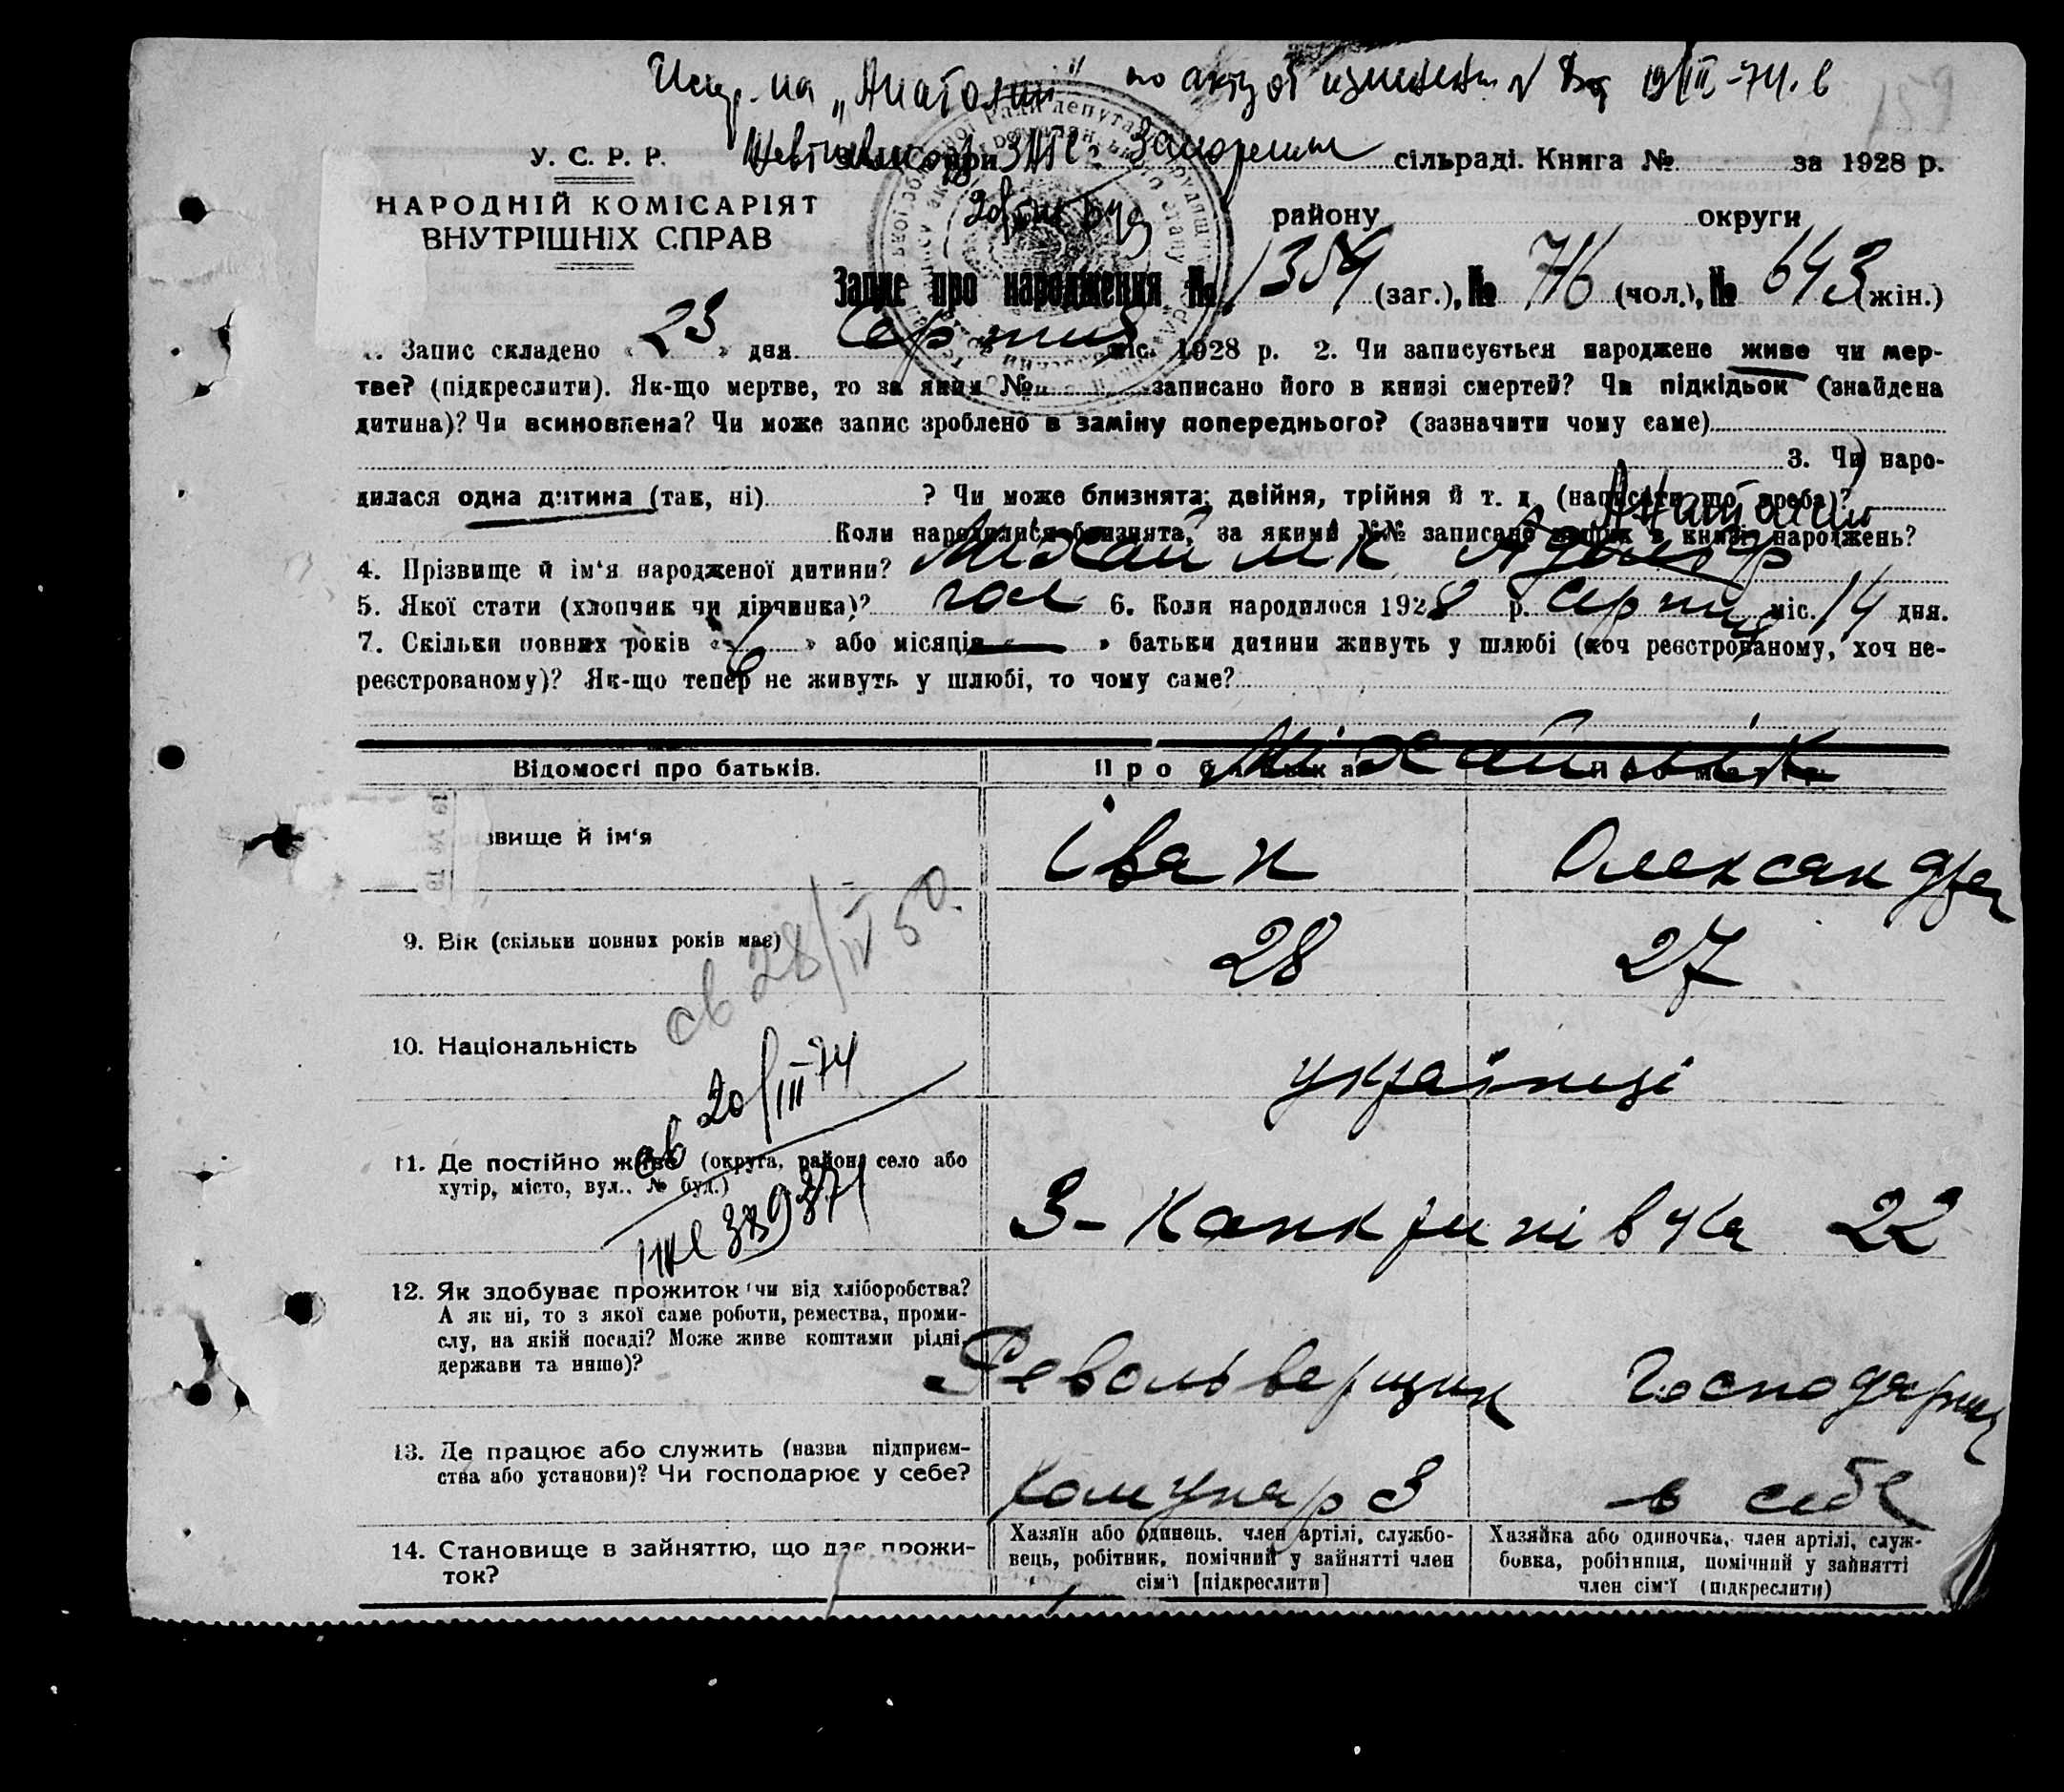 Испр. на „Анатолий" по акту об изменении № 19/III-74. в
У. С. Р. Р. ЗАГС г. Запорожья сільраді. Книга № за 1928 р.
НАРОДНІЙ КОМІСАРІЯТ
ВНУТРІШНІХ СПРАВ
району округи
Запис про народження № 1359 (заг.), № 716 (чол.), № 643 (жін.)
1. Запис складено « 23 » дня Серпня міс. 1928 р. 2. Чи записується народжене живе чи мер-
тве? (підкреслити). Як-що мертве, то за яким № записано його в книзі смертей? Чи підкідьок (знайдена
дитина)? Чи всиновлена? Чи може запис зроблено в заміну попереднього? (зазначити чому саме)
3. Чи наро-
дилася одна дитина (так, ні) ? Чи може близнята; двійня, трійня й т. д. (написати що треба)?
Анатолій
Коли народилися близнята, за якими №№ записано інших в книзі народжень?
4. Прізвище й ім'я народженої дитини? Михайлик
5. Якої стати (хлопчик чи дівчинка)? чол 6. Коли народилося 1928 р. Серпня міс. 14 дня.
7. Скільки повних років « 6 » або місяців « — » батьки дитини живуть у шлюбі (хоч реєстрованому, хоч не-
реєстрованому)? Як-що тепер не живуть у шлюбі, то чому саме?
Міхайлик
Відомості про батьків. Про батька Про матір
звище й ім'я Іван Олександра
9. Вік (скільки повних років має) 28 27
св 28/IV 50.
10. Національність українці
св 20/III-74
11. Де постійно живе (округа, район, село або
хутір, місто, вул., № буд.) З-Канкринівка 22
12. Як здобуває прожиток чи від хліборобства?
А як ні, то з якої саме роботи, ремества, проми-
слу, на якій посаді? Може живе коштами рідні,
держави та инше)? Револьверщик Господарка
13. Де працює або служить (назва підприєм-
ства або установи)? Чи господарює у себе? Комунар З в себе
14. Становище в зайняттю, що дає прожи-
ток?
Хазяїн або одинець, член артілі, службо-
вець, робітник, помічний у зайнятті член
сім'ї [підкреслити]
Хазяйка або одиночка, член артілі, служ-
бовка, робітниця, помічний у зайнятті
член сім'ї (підкреслити)